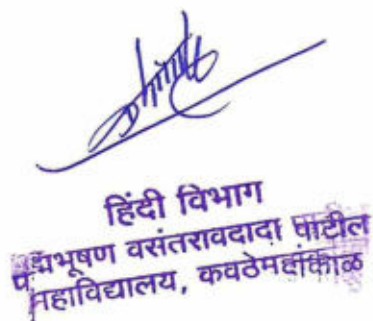 हिंदी विभाग
पद्मभूषण वसंतरावदादा पाटील
महाविद्यालय, कवठेमहांकाळ